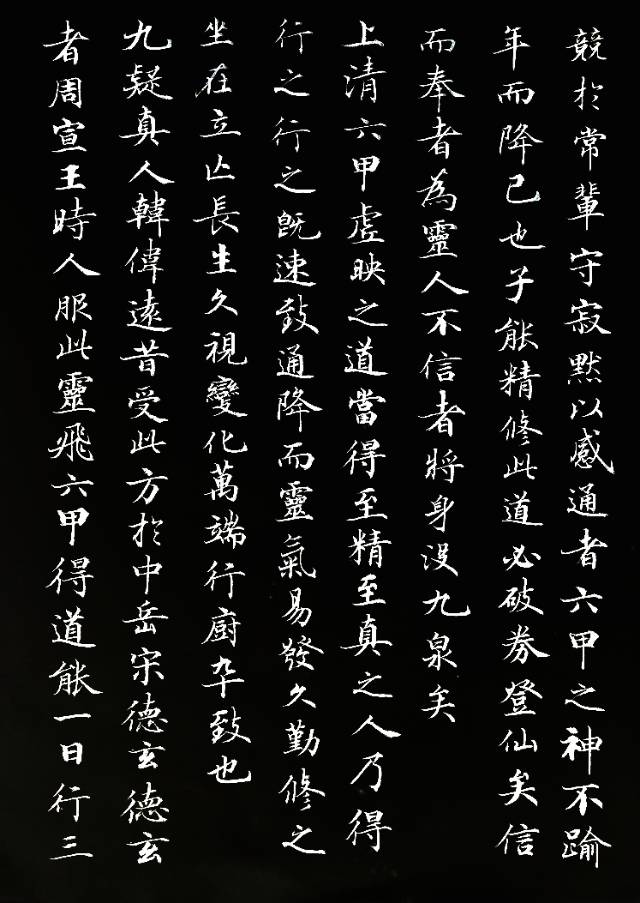 競於常輩守寂默以感通者六甲之神不踰
年而降已也子能精修此道必破券登仙矣信
而奉者為靈人不信者將身沒九泉矣
上清六甲虛映之道當得至精至真之人乃得
行之行之既速致通降而靈氣易發久勤修之
坐在立亾長生久視變化萬端行廚卒致也
九疑真人韓偉遠昔受此方於中岳宋德玄德玄
者周宣王時人服此靈飛六甲得道能一日行三